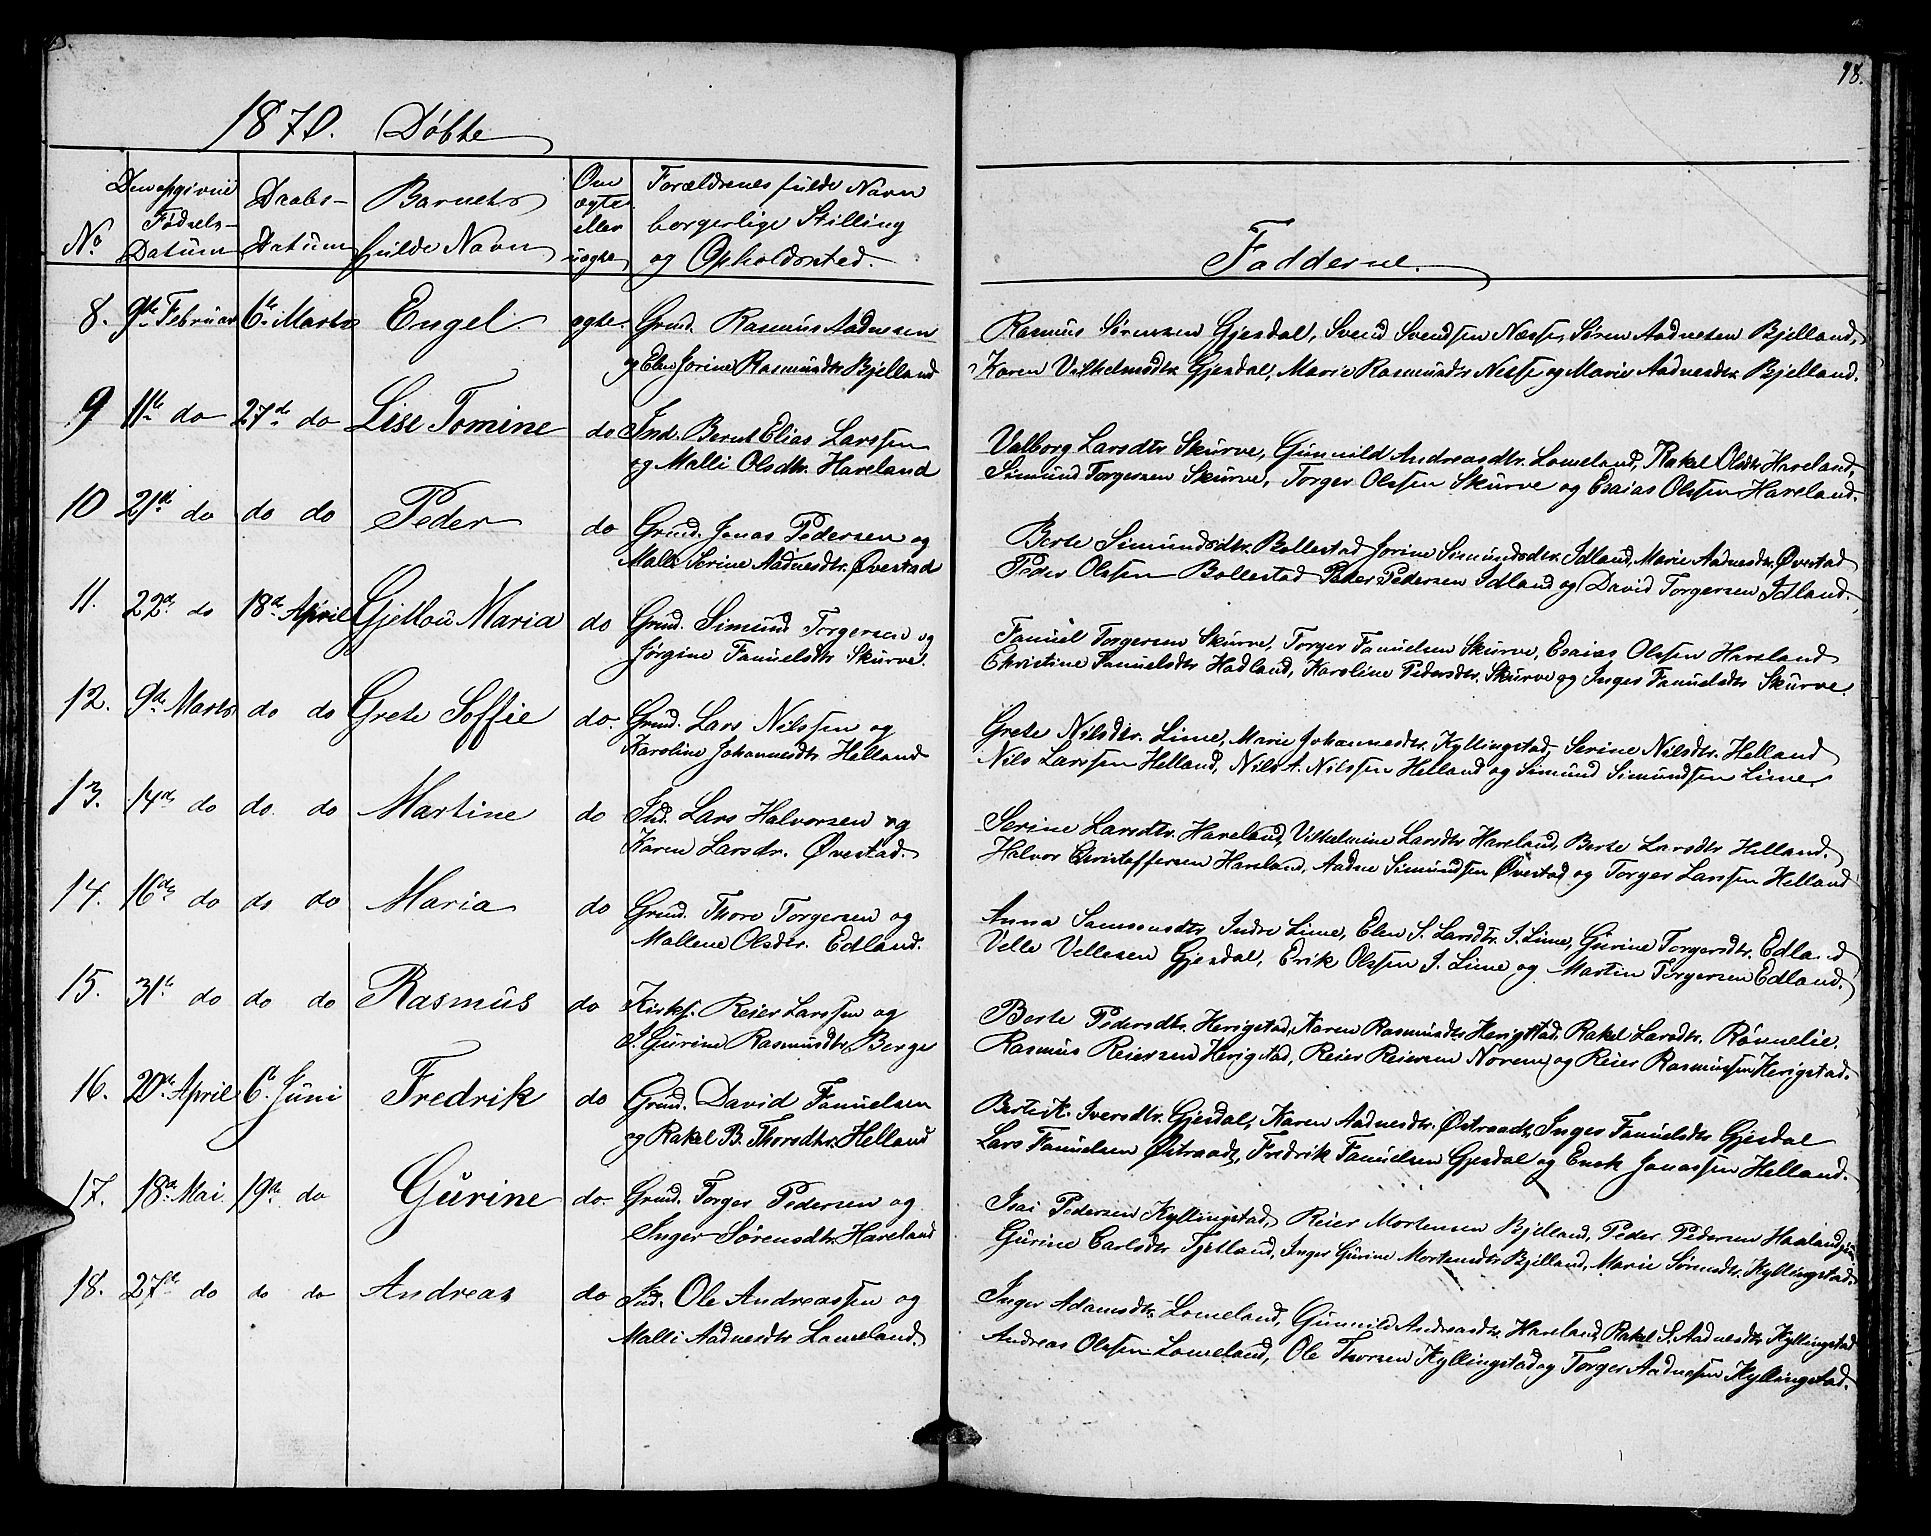 98.
1870. Døbte
No
Den opgivne Fødsels-Datum
Daabs-Datum
Barnets fulde Navn
Om ægte eller uægte
Forældrenes fulde Navn borgerlige Stilling og Opholdssted.
Fadderne.
8. 9de Februar 6te Marts Engel. ægte. Gmd. Rasmus Aadnesen
og Elen Jorine Rasmusdtr Bjelland
Rasmus Sørensen Gjesdal, Svend Svendsen Næsse, Søren Aadnesen Bjelland,
Karen Vilhelmsdtr. Gjesdal, Marie Rasmusdtr Nesse og Marie Aadnesdtr. Bjelland.
9 11te do 27de do Lise Tomine do Ind. Bernt Elias Larssen
og Malli Olsdtr. Haveland
Valborg Larsdtr Skurve, Gunnild Andreasdtr. Lomeland, Rakel Olsdtr Haveland,
Simund Torgersen Skurve, Torger Olssen Skurve og Esaias Olssen Haveland.
10 21de do do do Peder do Grmd. Jonas Pedersen og
Malli Serine Aadnesdtr. Øvestad
Berte Simundsdtr. Bollestad Jorine Simundsdtr. Idland, Marie Aadnesdtr. Øvestad
Peder Olssen Bollestad Peter Pedersen Idland og David Torgersen Idland.
11. 22de do 18de April Gjellou Maria do Grmd. Simund Torgersen og
Jørgine Fanuelsdtr Skurve.
Fanuel Torgersen Skurve, Torger Fanuelsen Skurve, Esaias Olssen Haveland
Christine Fanuelsdtr Hadland, Karoline Pedersdtr. Skurve og Inger Fanuelsdtr Skurve.
12. 9de Marts do do Grete Soffie do. Grmd. Lars Nilssen og
Karoline Johannesdtr Helland
Grete Nilsdtr. Lime, Marie Johannesdtr. Kyllingstad, Serine Nilsdtr. Helland
Nils Larssen Helland, Nils A. Nilssen Helland og Simund Simundsen Lime.
13. 14de do do do Martine do Ind. Lars Halvorsen og
Karen Larsdr. Øvestad.
Serine Larsdtr. Haveland, Vilhelmine Larsdtr Haveland, Berte Larsdtr Helland.
Halvor Christoffersen Haveland, Aadne Simundsen Øvestad og Torger Larssen Helland
14. 16de do do do Maria do Grmd. Thore Torgersen og
Mallene Olsdtr. Edland.
Anna Samsonsdtr Indre Lime, Elen S. Larsdtr. I. Lime, Gurine Torgersdtr. Edland
Velle Vellesen Gjesdal, Erik Olssen I. Lime og Martin Torgersen Edland.
15. 31te do do do Rasmus do Kirks. Reier Larssen og
I. Gurine Rasmusdtr. Berge
Berte Pedersdtr. Herigstad, Karen Rasmusdtr Herigstad, Rakel Larsdtr. Rønnelie.
Rasmus Reiersen Herigstad, Reier Reiersen Norem og Reier Rasmussen Herigstad.
16. 20de April 6te Juni Fredrik do Grmd. David Fanuelsen
og Rakel B. Thorsdtr. Helland
Berte K. Iversdtr. Gjesdal, Karen Aadnesdtr. Østraadt, Inger Fanuelsdtr Gjesdal
Lars Fanuelsen Østraadt, Fredrik Fanuelsen Gjesdal og Enok Jonassen Helland.
17. 18de Mai 19de do Gurine do. Grmd. Torger Pedersen og
Inger Sørensdtr. Haveland
Isai Pedersen Kyllingstad, Reier Mortensen Bjelland, Peder Pedersen Haaland,
Gurine Carlsdtr Tjetland, Inger Gurine Mortensdtr Bjelland, Marie Sørensdtr. Kyllingstad.
18. 27de do do do Andreas do Ind. Ole Andreassen og
Malli Aadnesdtr Lomeland.
Inger Adamsdtr. Lomeland, Gunnild Andreasdtr Haveland, Rakel S. Aadnesdtr Kyllingstad
Andreas Olssen Lomeland, Ole Thorsen Kyllingstad og Torger Aadnesen Kyllingstad.